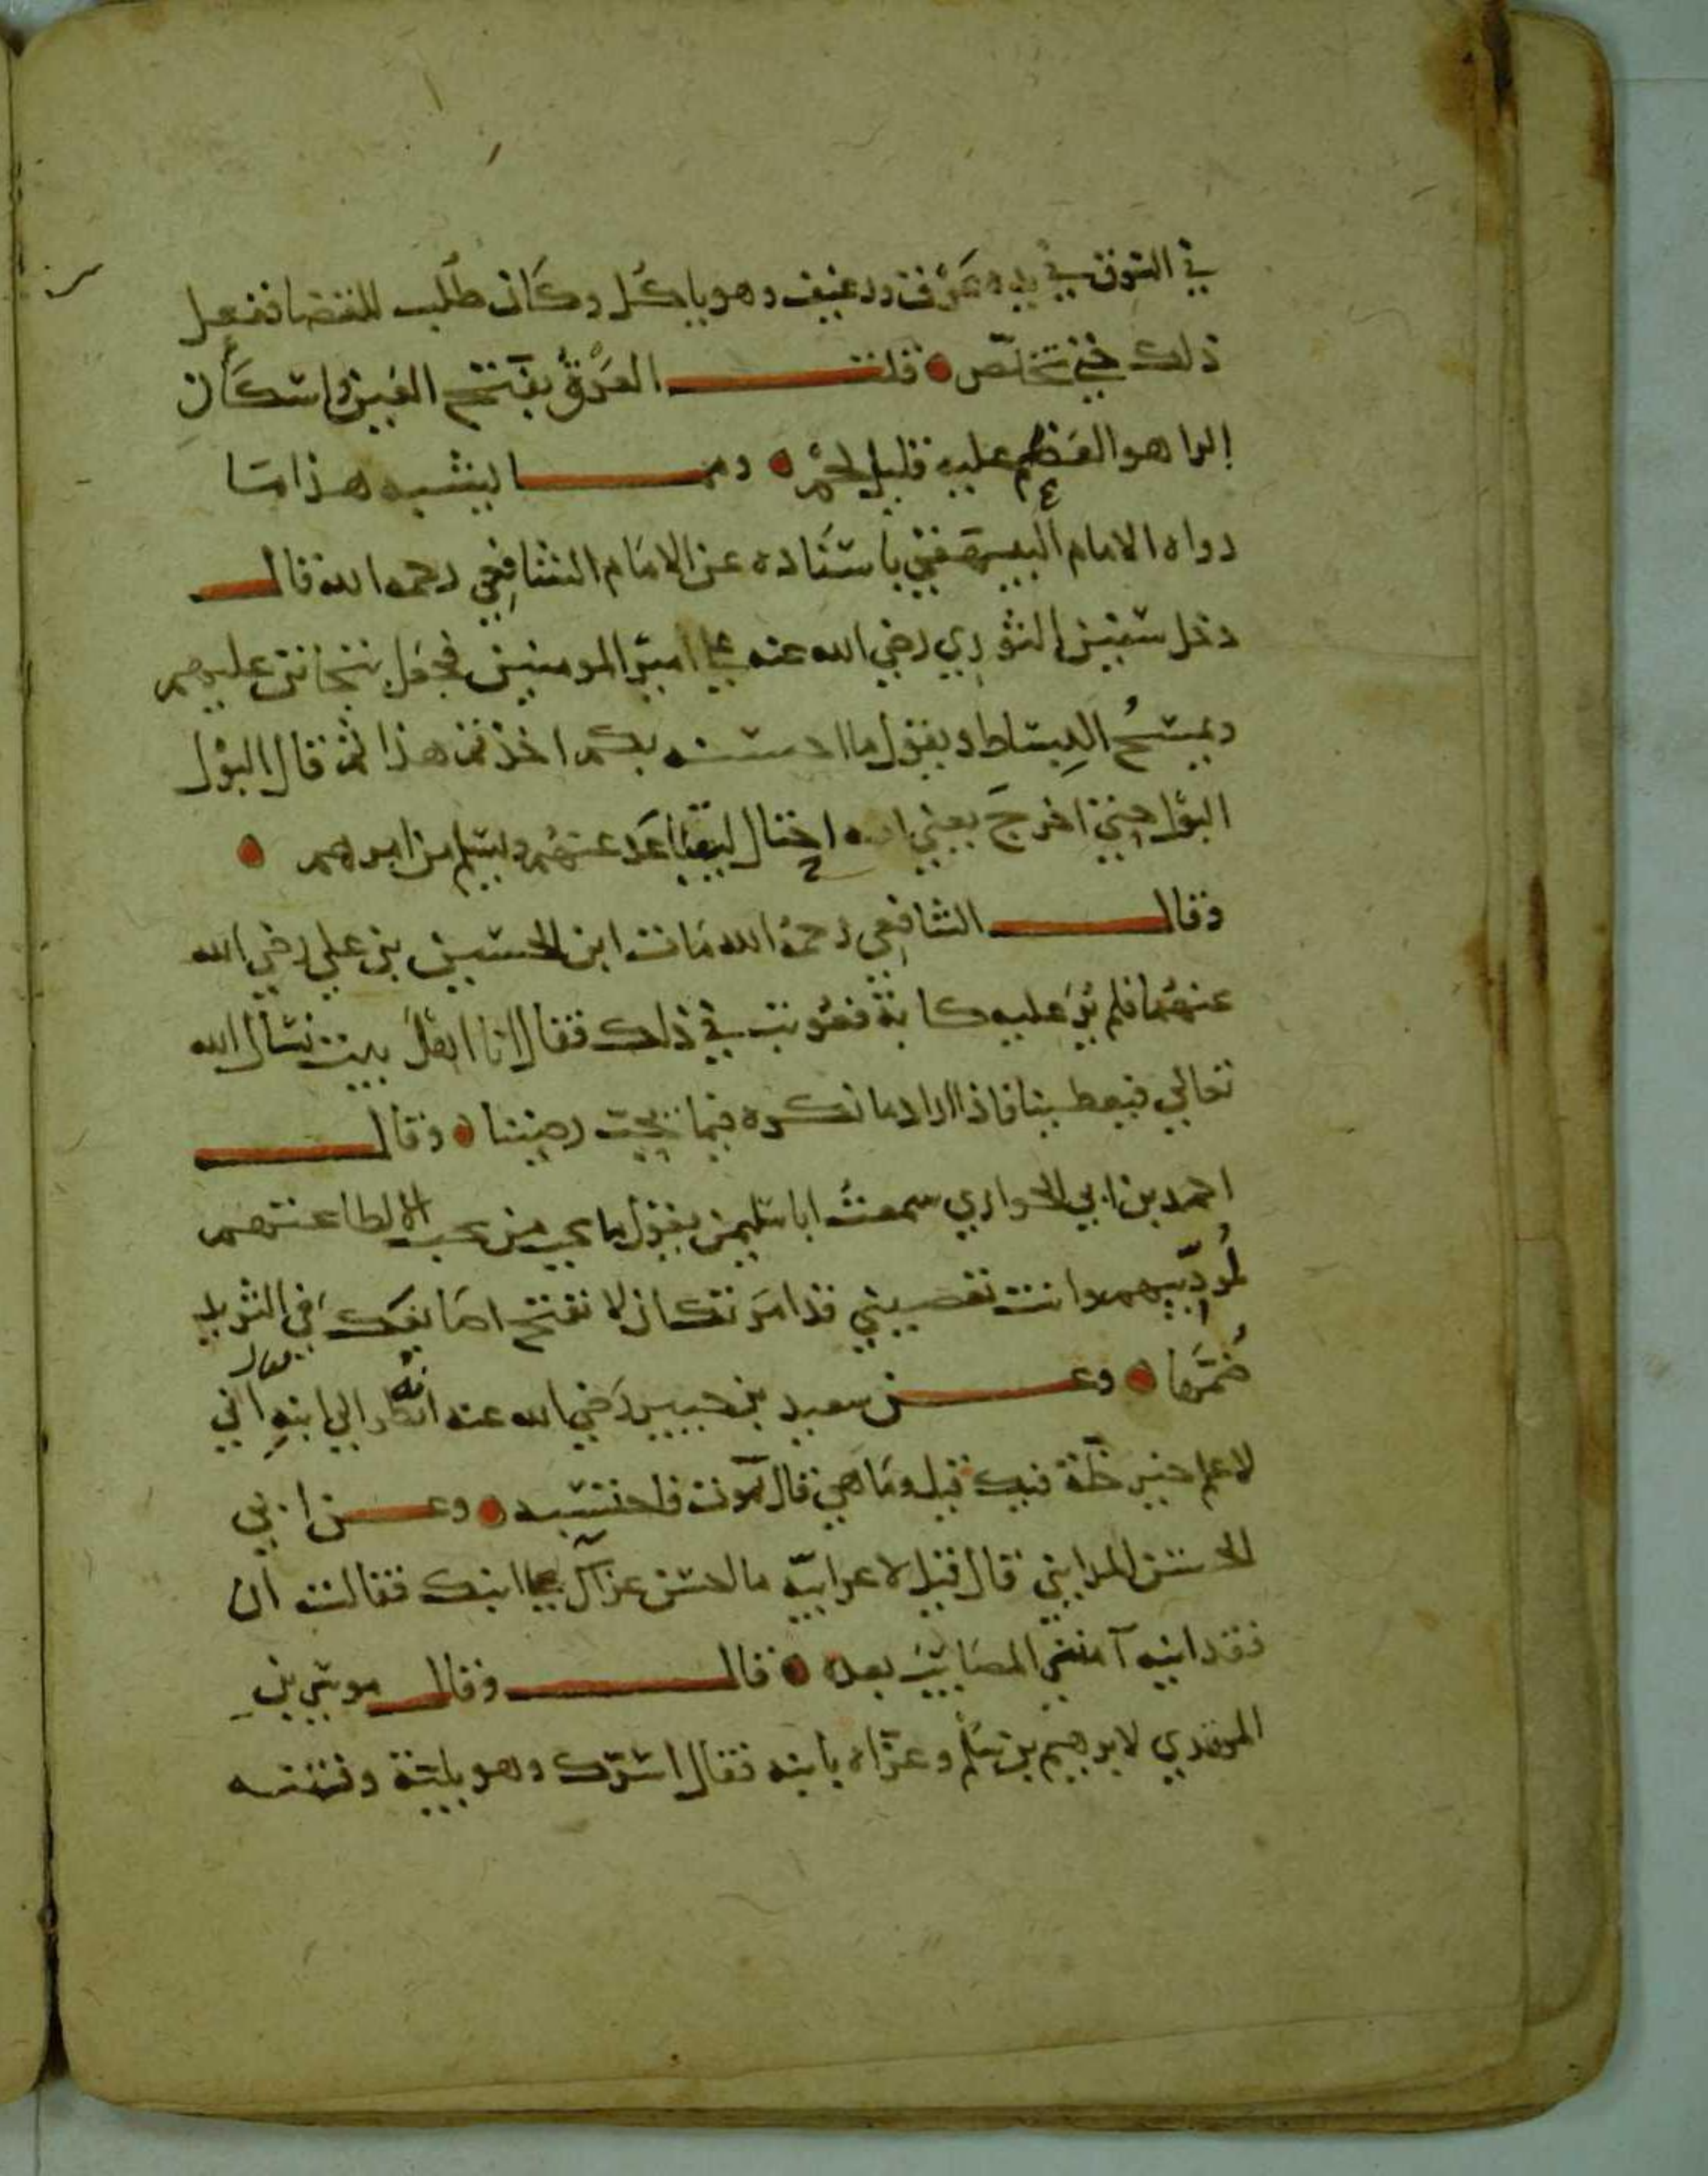 في السوق في يده عَرْق ورغيف وهو ياكل وكان طُلب للقضا ففعل
ذلك حتى تخلص قلت العَرْقُ بفتح العين واسكان
الرا هو العَظم عليه قليل لحم ومما يشبه هذا ما
رواه الامام البيهقي باسناده عن الامام الشافعي رحمه الله قال
دخل سفين الثوري رضي الله عنه على امير المومنين فجعل يتجانن عليهم
ويمسحُ البِساط ويقول ما احسنه بكم اخذتم هذا ثم قال البول
البول حتى اخرجَ يعني انه احتال ليتباعد عنهم ويسلم من امرهم
وقال الشافعي رحمهُ الله مات ابن للحسين بن علي رضي الله
عنهما فلم يُرَ عليه كابة فعُوتب في ذلك فقال انا اهل بيت نسال الله
تعالى فيعطينا فاذا اراد ما نكره فيما يحب رضينا وقال
احمد بن ابي الحواري سمعتُ ابا سليمن يقول ما يحي من يحب الا لطاعتهم
لمُودِّبهم وانت تعصيني قد امرتك ان لا تفتح اصابعك في الثريد
ضُمَّها وعن سعيد بن جبير رَضي الله عنه انه نظر الى ابنهِ فقال اني
لاعلم خير خلة فيك قيل وما هي قال تموت فاحتسبه وعن ابي
الحسن المدايني قال قيل لاعرابيّة ما احسن عزآكِ على ابنك فقالت ان
فقد ابيه آمنني المصائب بعده قال وقال موسى بنِ
المهدي لابرهيم بن سَلم وعزَّاه بابنه فقال اسَرّك وهو بلية وفتنه